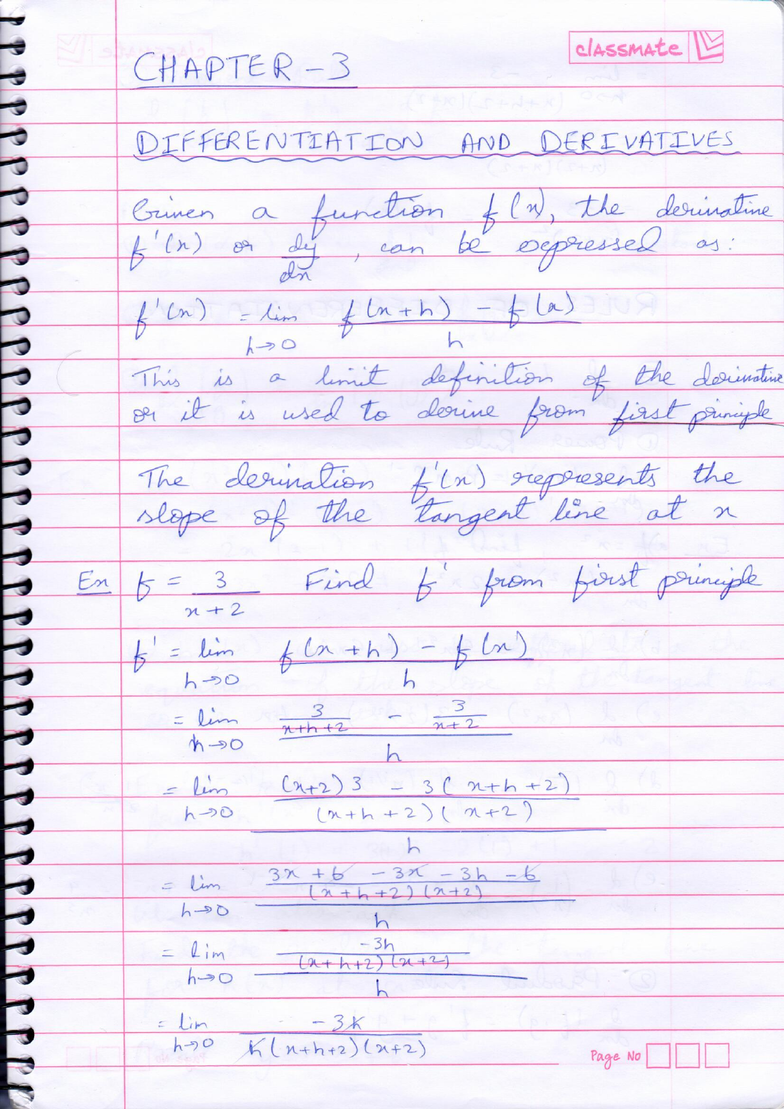 classmate
CHAPTER-3
DIFFERENTIATION AND DERIVATIVES
Given a function f(x), the derivative
f'(x) or dy/dx, can be expressed as:
f'(x) = lim h→0 (f(x+h) - f(x))/h
This is a limit definition of the derivative
or it is used to derive from first principle
The derivation f'(x) represents the
slope of the tangent line at x
Ex f = 3/(x+2) Find f' from first principle
f' = lim h→0 (f(x+h) - f(x))/h
= lim h→0 (3/(x+h+2) - 3/(x+2))/h
= lim h→0 (((x+2)3 - 3(x+h+2))/((x+h+2)(x+2)))/h
= lim h→0 ((3x+6 -3x -3h -6)/((x+h+2)(x+2)))/h
= lim h→0 (-3h/((x+h+2)(x+2)))/h
= lim h→0 -3h/(h(x+h+2)(x+2))
Page No